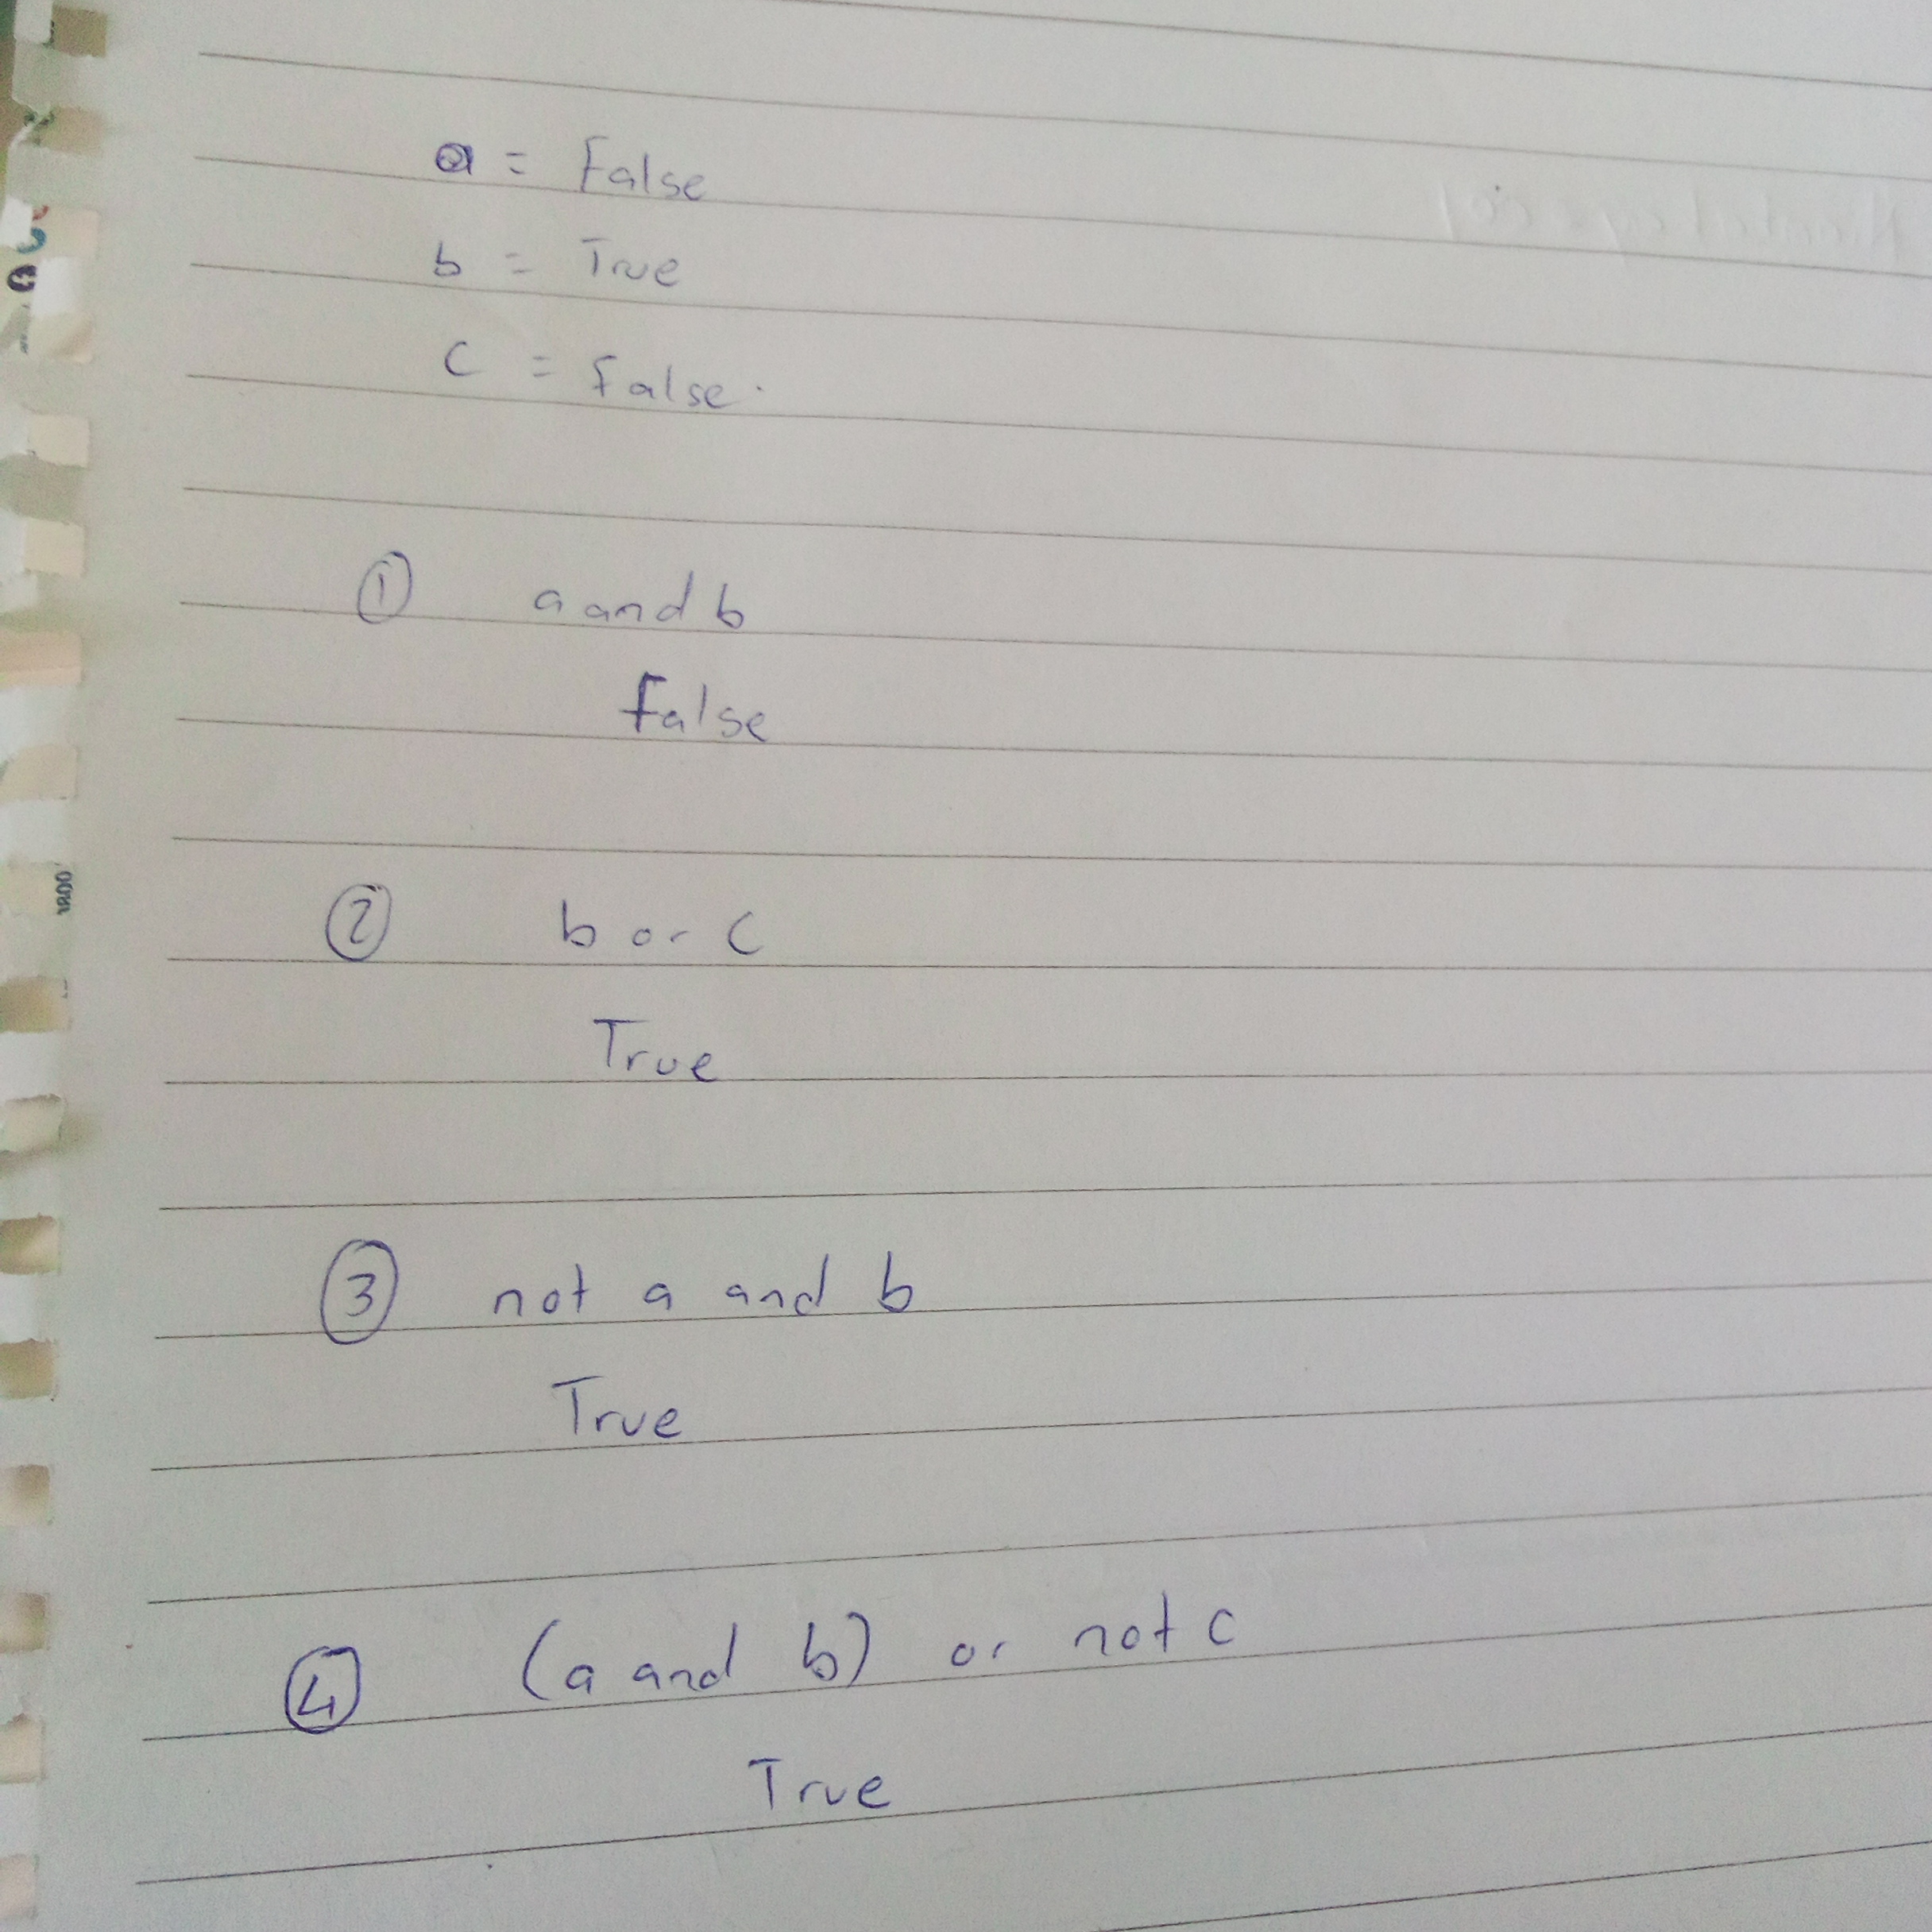 a = False
b = True
c = False.
① a and b
False
② b or c
True
③ not a and b
True
④ (a and b) or not c
True